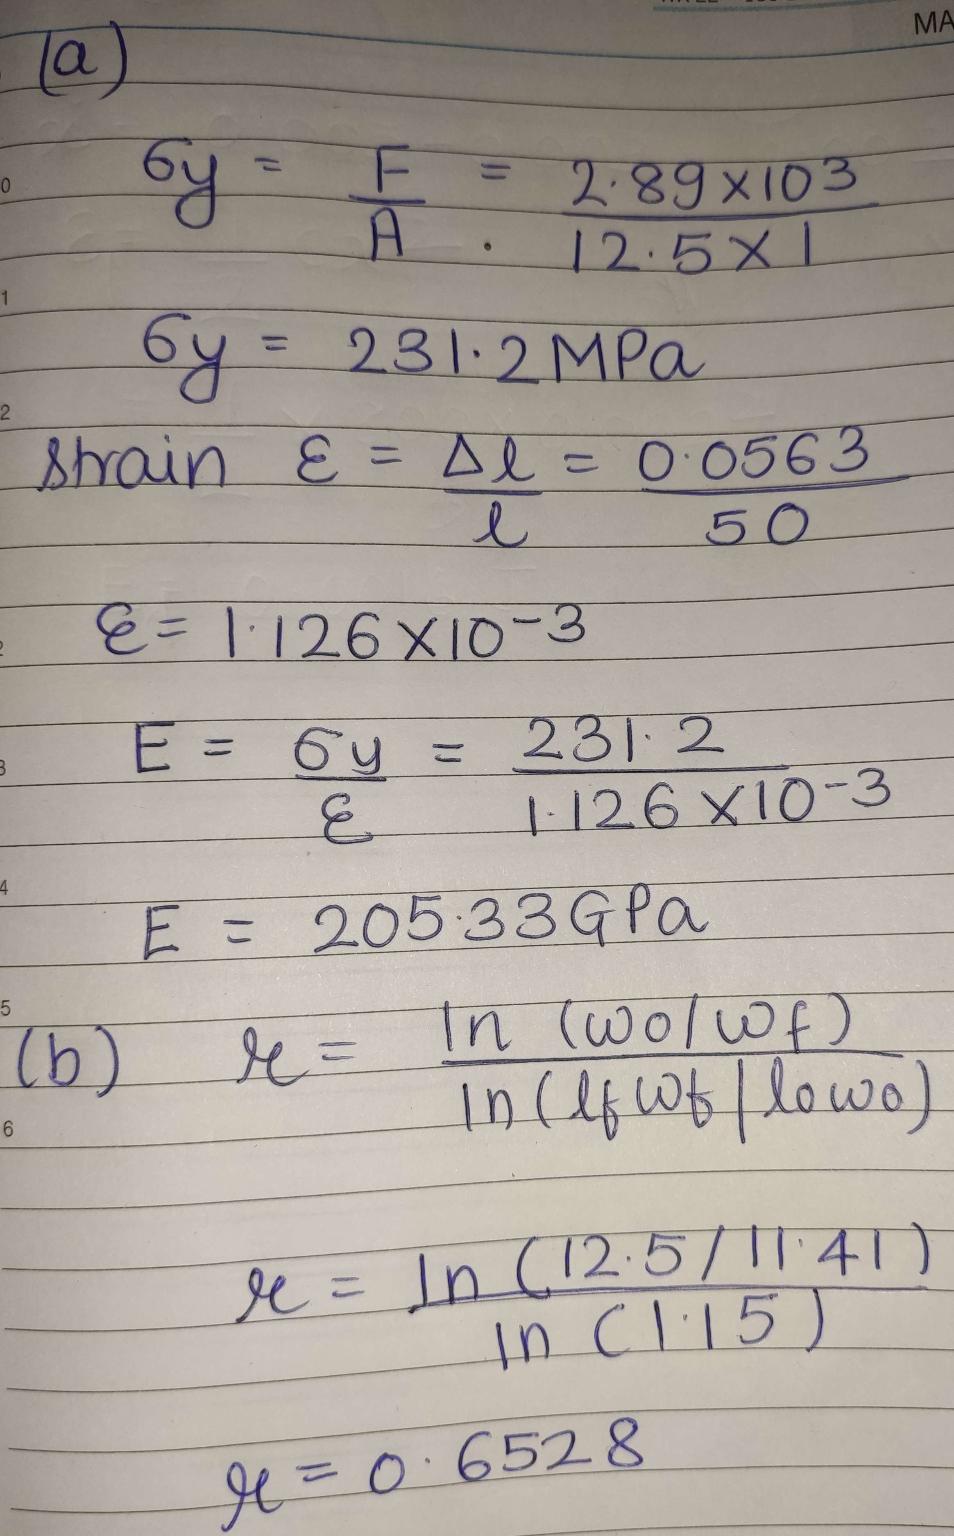 MA
(a)
σy = F/A = 2.89x103/12.5x1
σy = 231.2 MPa
strain ε = Δl/l = 0.0563/50
ε = 1.126x10-3
E = σy/ε = 231.2/1.126x10-3
E = 205.33 GPa
(b) r = ln (wo/wf)/ln(lfwf/lowo)
r = ln (12.5/11.41)/ln (1.15)
r = 0.6528